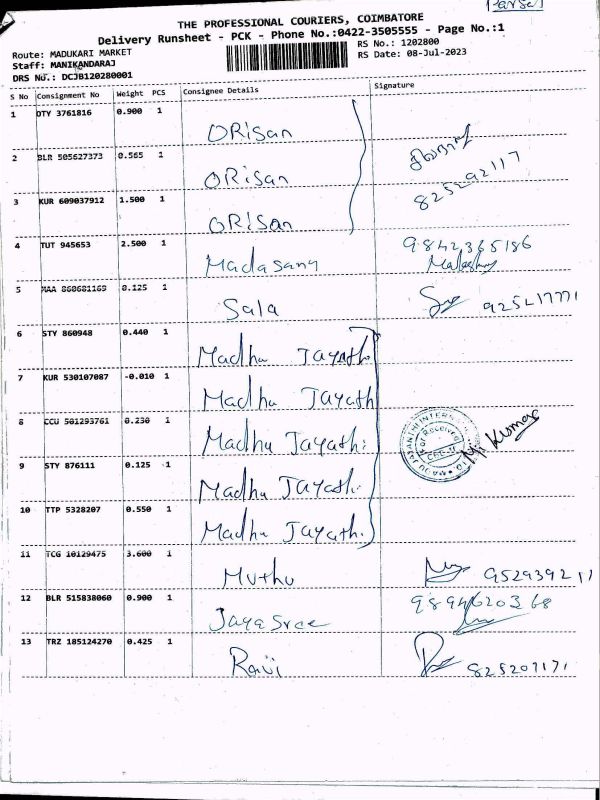 Parsel
THE PROFESSIONAL COURIERS, COIMBATORE
Delivery Runsheet - PCK - Phone No.:0422-3505555 - Page No.:1
Route: MADUKARI MARKET
RS No.: 1202800
Staff: MANIKANDARAJ
RS Date: 08-Jul-2023
DRS No.: DCJB120280001
S No Consignment No Weight PCS Consignee Details Signature
1 DTY 3761816 0.900 1 ORisan
2 BLR 505627373 0.565 1 ORisan
3 KUR 609037912 1.500 1 ORisan 825292117
4 TUT 945653 2.500 1 Madasany 9842365186
5 MAA 860681169 0.125 1 Sala
6 STY 860948 0.440 1 Madhu Jayathi
7 KUR 530107087 -0.010 1 Madhu Jayath
8 CCU 501293761 0.230 1 Madhu Jayathi M. Kumar
9 STY 876111 0.125 1 Madhu Jayathi
10 TTP 5328207 0.550 1 Madhu Jayathi
11 TCG 10129475 3.600 1 Muthu
12 BLR 515838060 0.900 1 Jayasree 9894620368
13 TRZ 185124270 0.425 1 Ravi